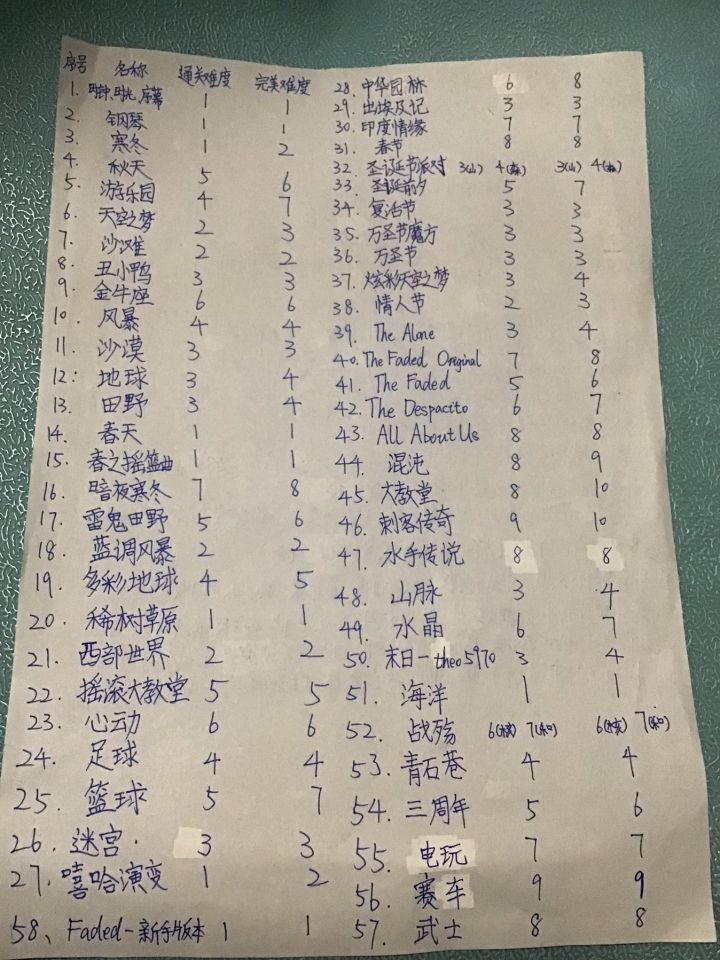 序号 名称 通关难度 完美难度
1. 1 1
2. 钢琴 1 1
3. 寒冬 1 2
4. 秋天 5 6
5. 游乐园 4 7
6. 天空之梦 2 3
7. 沙滩 2 2
8. 丑小鸭 3 3
9. 金牛座 6 6
10. 风暴 4 4
11. 沙漠 3 3
12. 地球 3 4
13. 田野 3 4
14. 春天 1 1
15. 春之摇篮曲 1 1
16. 暗夜寒冬 7 8
17. 雷鬼田野 5 6
18. 蓝调风暴 2 2
19. 多彩地球 4 5
20. 稀树草原 1 1
21. 西部世界 2 2
22. 摇滚大教堂 5 5
23. 心动 6 6
24. 足球 4 4
25. 篮球 5 7
26. 迷宫. 3 3
27. 嘻哈演变 1 2
58、Faded-新手版本 1 1
28. 中华园林 6 8
29. 出埃及记 3 3
30. 印度情缘 7 7
31. 春节 8 8
32. 圣诞节派对 3(山) 4(森) 3(山) 4(森)
33. 圣诞前夕 5 7
34. 复活节 3 3
35. 万圣节魔方 3 3
36. 万圣节 3 3
37. 炫彩天空之梦 3 4
38. 情人节 2 3
39. The Alone 3 4
40. The Faded Original 7 8
41. The Faded 5 6
42. The Despacito 6 7
43. All About Us 8 8
44. 混沌 8 9
45. 大教堂 8 10
46. 刺客传奇 9 10
47. 水手传说 8 8
48. 山脉 3 4
49. 水晶 6 7
50. 末日-theo5970 3 4
51. 海洋 1 1
52. 战殇 6 7(和) 6 7(和)
53. 青石巷 4 4
54. 三周年 5 6
55. 电玩 7 7
56. 赛车 9 9
57. 武士 8 8